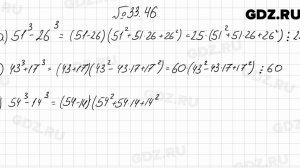 GDZ.RU
№33.46
) 51³-26³ = (51-26)(51²+51·26+26²)=25·(51²+51·26+26²)⋮2
) 43³+17³ = (43+17)(43²-43·17+17²)=60(43²-43·17+17²)⋮60
) 54³-14³ = (54-14)(54²+54·14+14²